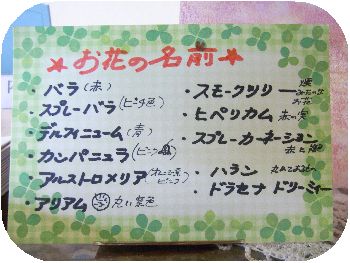 ★お花の名前★
・バラ(赤)
・スプレーバラ(ピンク色)
・デルフィニューム(青)
・カンパニュラ(ピンク
・アルストロメリア(オレンジ系ピンク)
・アリアム 丸い紫色
・スモークツリー 煙みたいなお花
・ヒペリカム 赤い実
・スプレーカーネーション 赤と
・ハラン 丸めてある
・ドラセナ ドリーミー